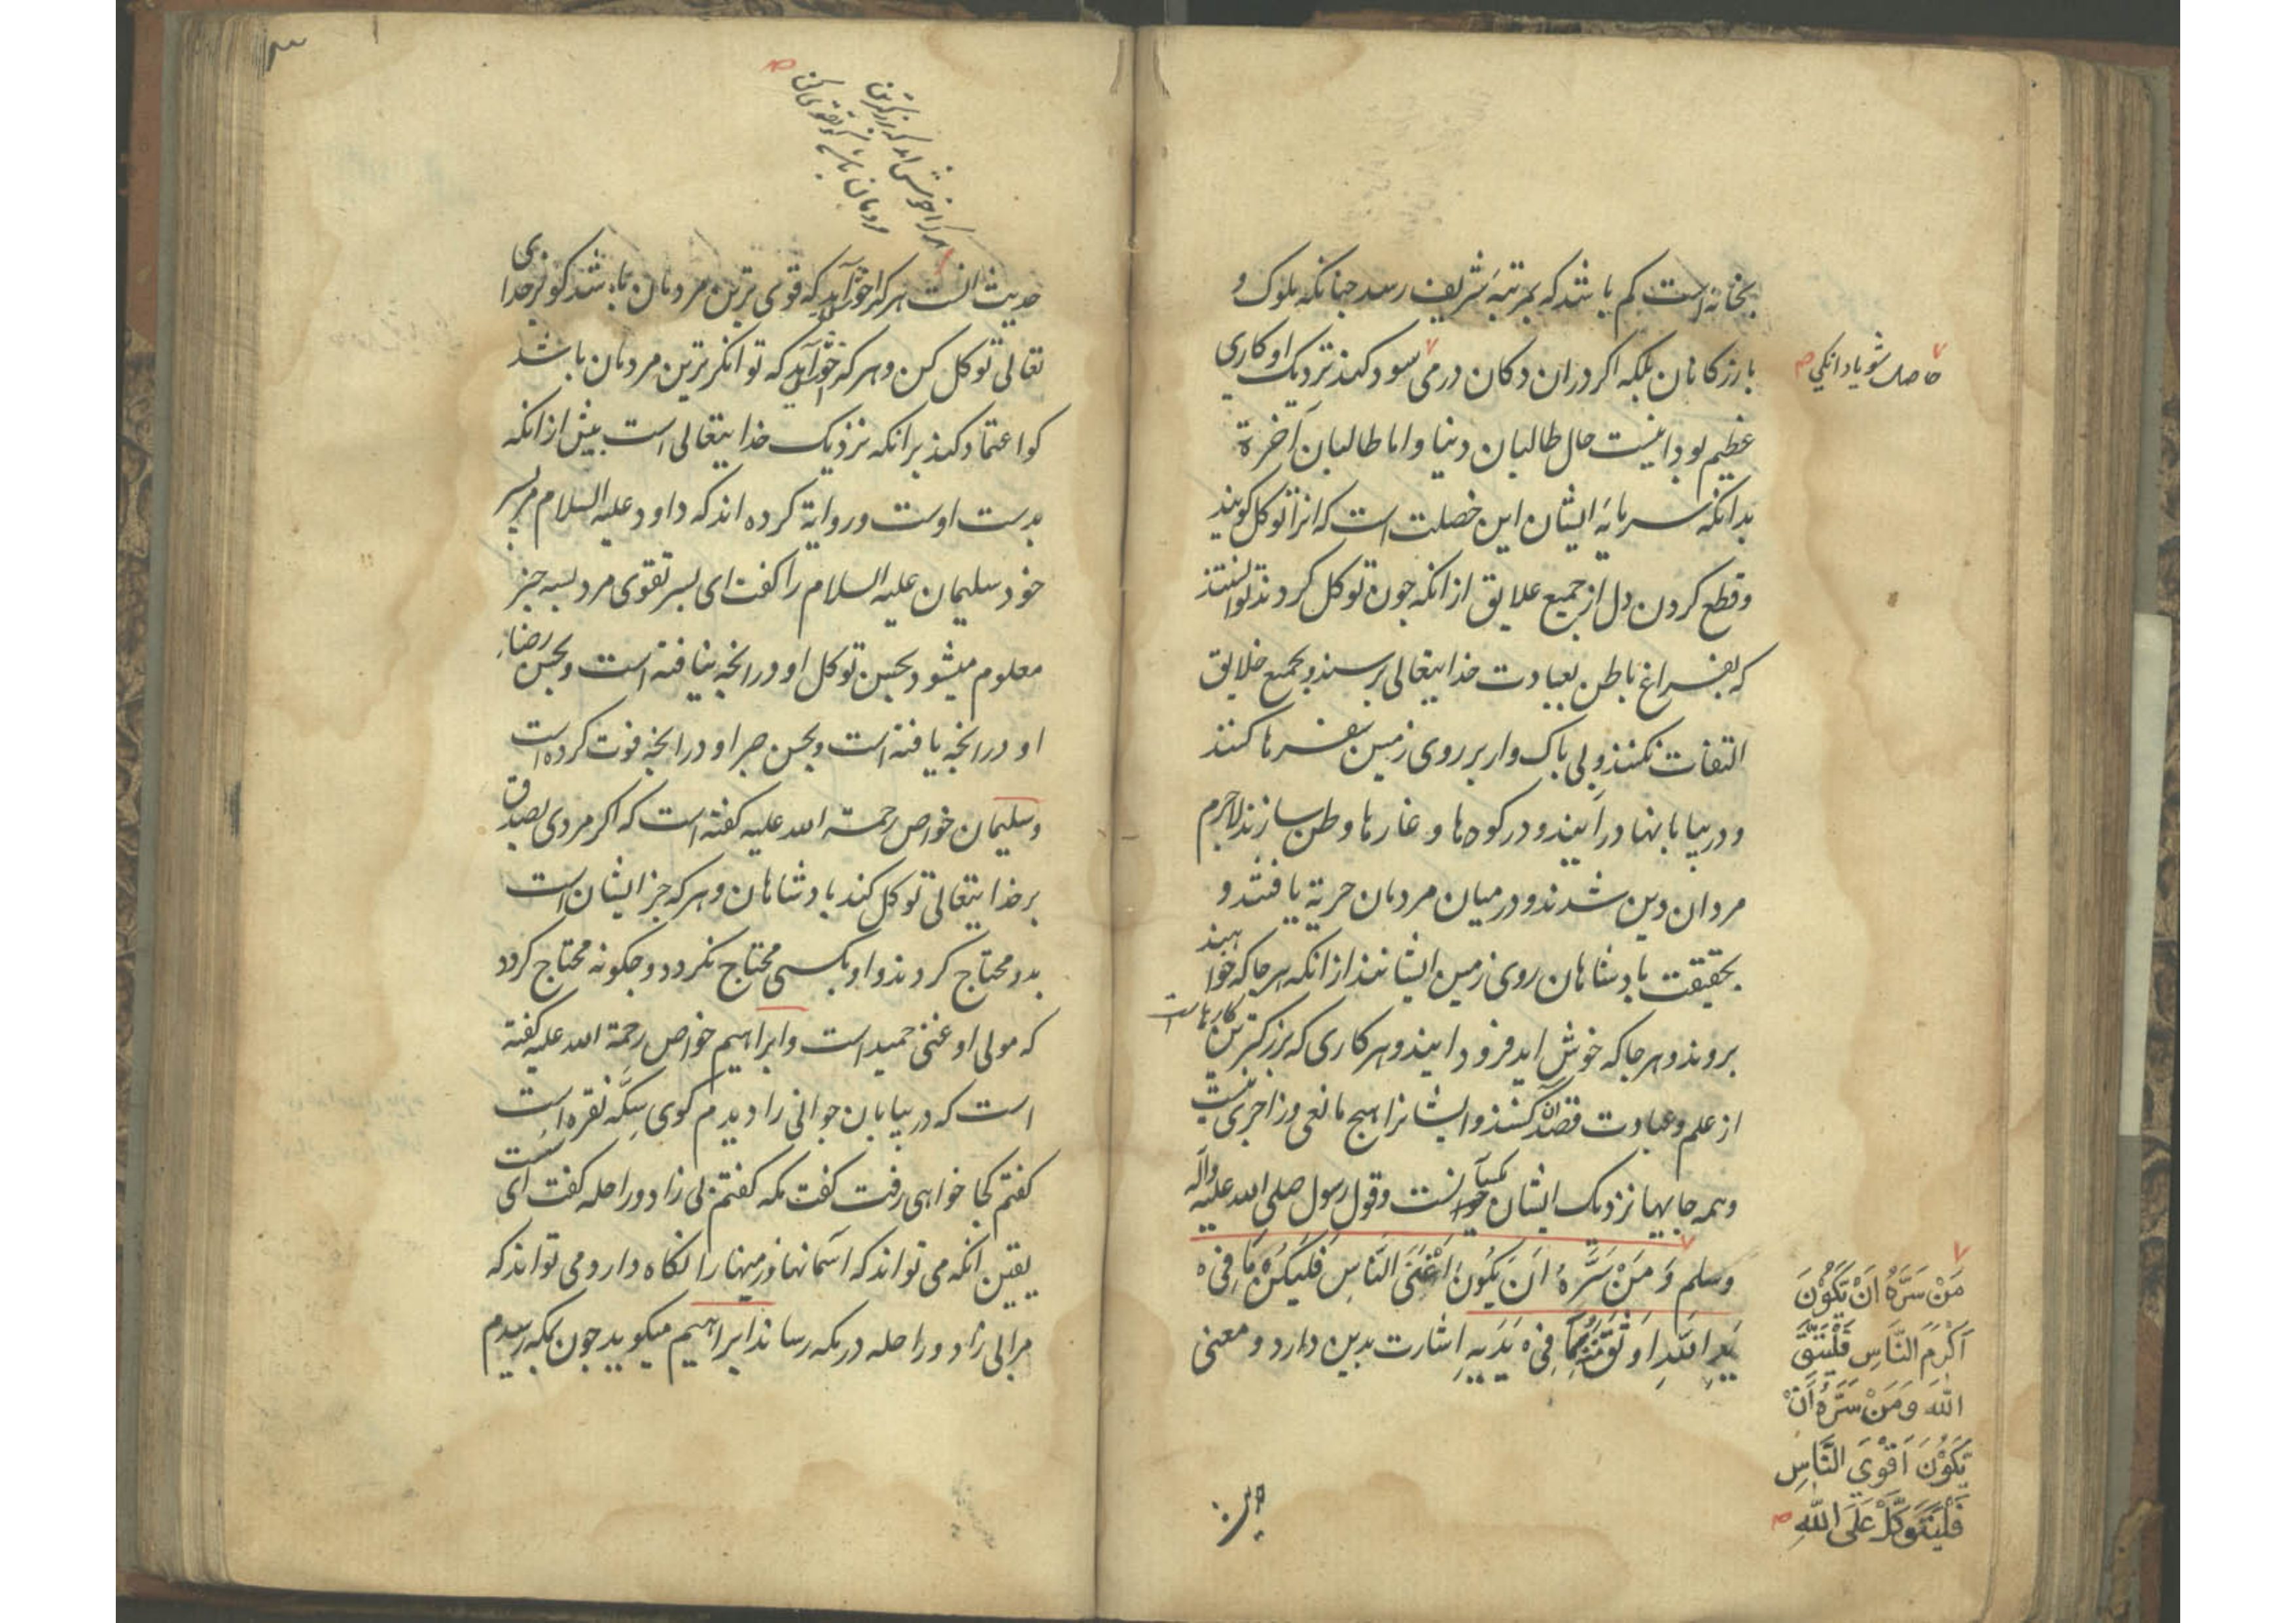 بخانه است کم باشد که بمرتبهٔ شریف رسد جنانکه ملوک و
بازرکانان بلکه اکر در ان دکان درمی سود کند نزدیک او کاری
حاصل شود یا دانکی
عظیم بود اینست حال طالبان دنیا و اما طالبان آخرة
بدانکه سرمایهٔ ایشان این خصلت است که انرا توکل کویند
و قطع کردن دل از جمیع علایق از انکه جون توکل کردند توانستند
که بفراغ باطن بعبادت خدایتعالی برسند و بجمیع خلایق
التفات نکنند و بی باک وار بر روی زمین سفرها کنند
و در بیابانها درآیند و در کوه ها و غارها وطن سازند لاجرم
مردان دین شدند و در میان مردمان حریة یافتند و
بحقیقت بادشاهان روی زمین ایشانند از انکه هر جا که خواهند
بروند و هر جا که خوش اید فرود ایند و هر کاری که بزرکترین کارهاست
از علم و عبادت قصد آن کنند و ایشانرا هیج مانعی و زاجری نیست
و همه جایها نزدیک ایشان یکسانست و قول رسول صلی الله علیه واله
وسلم وَ مَنْ سَرَّهُ اَنْ یَکُونَ اَغْنَی النَّاسِ فَلْیَکُنْ بِمَا فِیْ
یَدِ اللهِ اَوْثَقَ مِنْهُ بِمَا فِیْ یَدَیْهِ اشارت بدین دارد و معنی
مَنْ سَرَّهُ اَنْ یَّکُوْنَ
اَکْرَمَ النَّاسِ فَلْیَتَّقِ
اللهَ وَ مَنْ سَرَّهُ اَنْ
یَّکُوْنَ اَقْوَی النَّاسِ
فَلْیَتَوَکَّلْ عَلَی اللهِ
هر کرا خوش اید که بزرکترین
مردمان باشد کو تقوی کن
حدیث انست هر کرا خوش آید که قوی ترین مردمان باشد کو بر خدای
تعالی توکل کن و هر که خوش آید که توانکرترین مردمان باشد
کو اعتماد کند بر انکه نزدیک خدایتعالی است بیش از انکه
بدست اوست و روایة کرده اند که داود علیه السلام مر بسر
خود سلیمان علیه السلام را کفت ای بسر تقوی مرد بسه جیز
معلوم میشود بحسن توکل او در انجه نیافته است و بحسن رضاء
او در انجه یافته است و بحسن صبر او در انجه فوت کرده است
و سلیمان خواص رحمة الله علیه کفته است که اکر مردی بصدق
بر خدایتعالی توکل کند بادشاهان و هر که جز ایشان است
بدو محتاج کردند و او بکسی محتاج نکردد و جکونه محتاج کردد
که مولی او غنی حمید است و ابراهیم خواص رحمة الله علیه کفته
است که در بیابان جوانی را دیدم کوی سکّه نقره است
کفتم کجا خواهی رفت کفت مکه کفتم بی زاد و راحله کفت ای سست
یقین انکه می تواند که اسمانها و زمینها را نکاه دارد می تواند که
مرا بی زاد و راحله در مکه رساند ابراهیم میکوید جون بمکه رسیدم